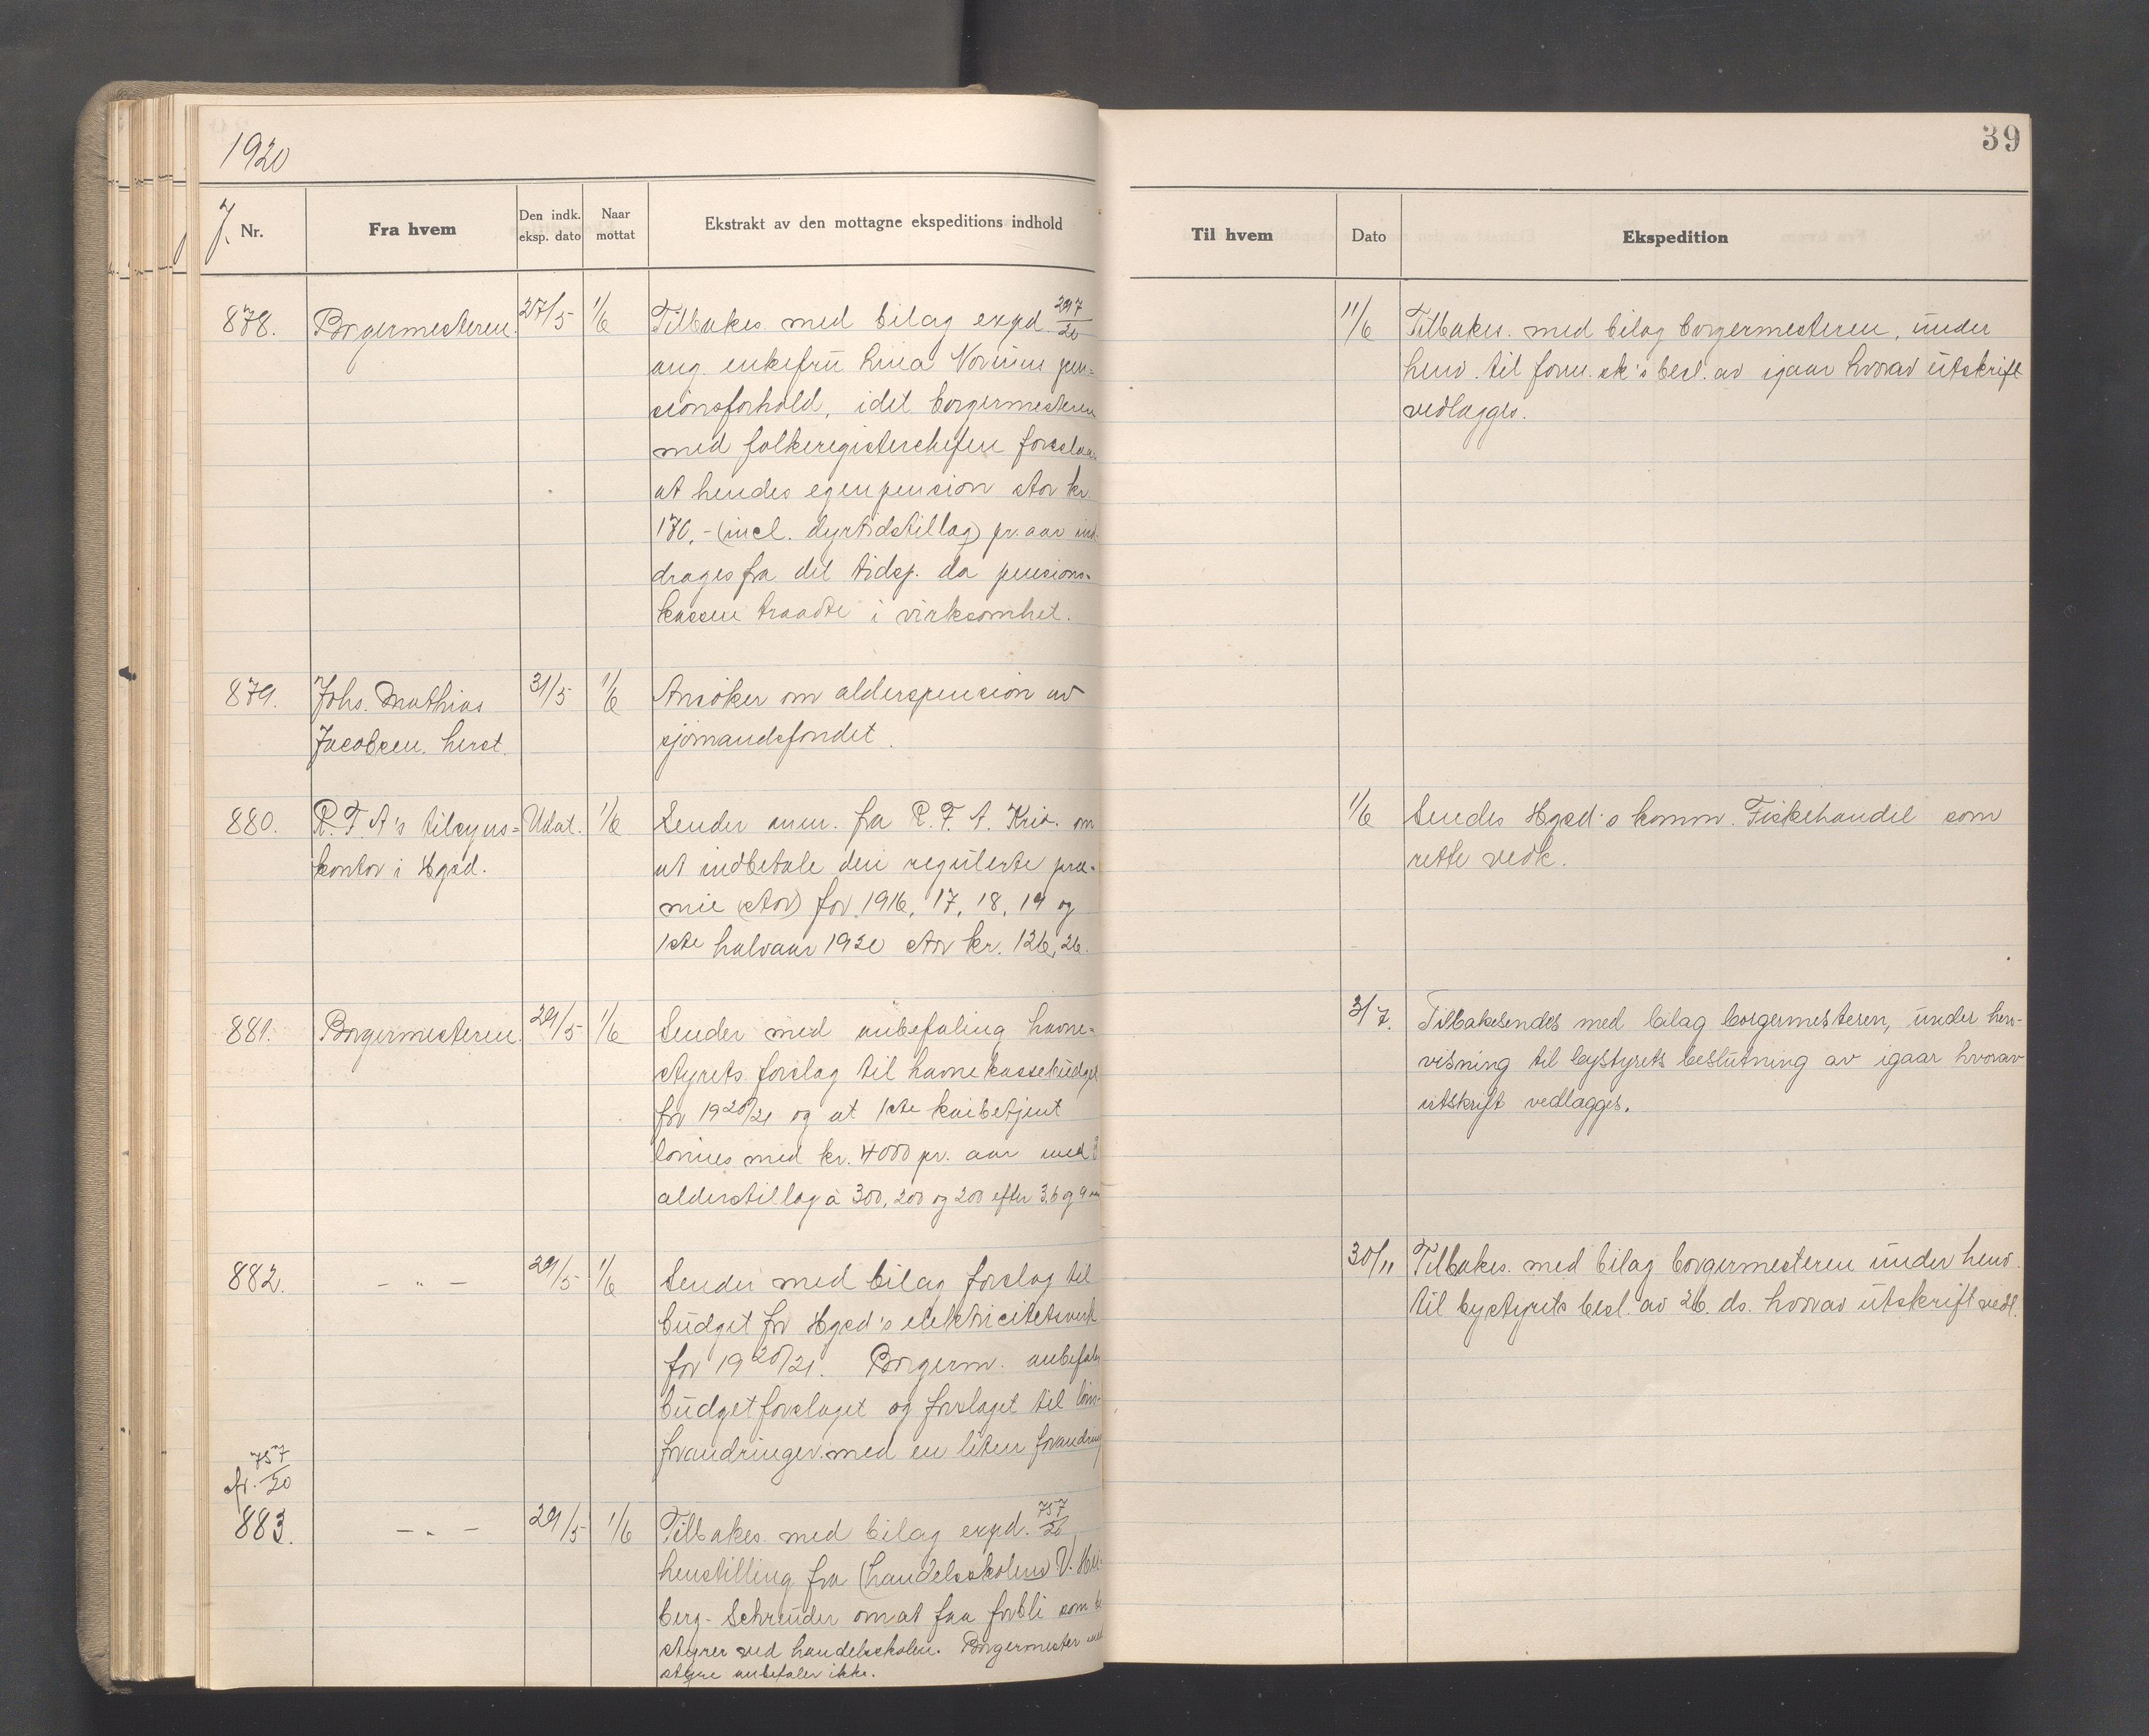 1920
39
J. Nr.
Fra hvem
Den indk. eksp. dato
Naar mottat
Ekstrakt av den mottagne ekspeditions indhold
Til hvem
Dato
Ekspedition
878. Borgermesteren. 27/5 1/6 Tilbakes. med bilag expd. 297/20
ang. enkefru Lina Norums pen=
sionsforhold, idet borgermesteren
med folkeregisterchefen foreslaar
at hendes egenpension stor kr.
170,- (incl. dyrtidstillag) pr. aar ind-
drages fra det tidsp. da pensions-
kassen traadte i virksomhet.
11/6 Tilbakes. med bilag borgermesteren, under
henv. til form.sk's besl. av igaar hvorav utskrift
vedlægges.
879. Johs. Mathias 31/5 1/6 Ansøker om alderspension av
Jacobsen. herst. sjømandsfondet.
880. R.T.A's tilsyns= Udat. 1/6 Sender anm. fra R.F.A. Kria. om
kontor i Hgsd. at indbetale den regulerte præ-
mie (stor) for 1916, 17, 18, 19 og
1ste halvaar 1920 stor kr. 126,26.
1/6 Sendes Hgsd's komm. Fiskehandel som
rette vedk.
881. Borgermesteren. 29/5 1/6 Sender med anbefaling havne-
styrets forslag til havnekassebudget
for 1920/21 og at 1ste kaibetjent
lønnes med kr. 4000 pr. aar med 3
alderstillag à 300, 200 og 200 efter 3.6 og 9 aar
3/7. Tilbakesendes med bilag borgermesteren, under hen-
visning til bystyrets beslutning av igaar hvorav
utskrift vedlægges.
882. - " - 29/5 1/6 Sender med bilag forslag til
budget for Hgsd's elektricitetsverk
for 1920/21. Borgerm. anbefaler
budgetforslaget og forslaget til løns-
forandringer med en liten forandring
30/11 Tilbakes. med bilag borgermesteren under henv.
til bystyrets besl. av 26. ds. hvorav utskrift vedl.
cfr. 757/20
883. - " - 29/5 1/6 Tilbakes. med bilag expd. 757/20
henstilling fra (handelsskolens) V.
berg-Schreuder om at faa forbli som be
styrer ved handelsskolen. Borgermester med
styre anbefaler ikke.